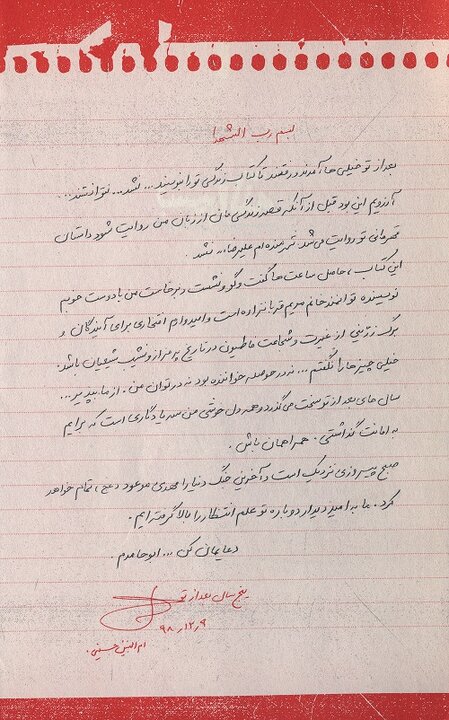 بسم رب الشهدا
بعد از تو خیلی ها آمدند و رفتند تا کتاب زندگی تو را بنویسند ... نشد ... نتوانستند ...
آرزویم این بود قبل از آنکه قصه زندگی مان از زبان من روایت شود داستان
قهرمانی تو روایت می شد. شرمنده ام علیرضا ... نشد.
این کتاب، حاصل ساعت ها گفت و گو و نشست و برخاست من با دوست خوبم
نویسنده توانمند خانم مریم قربانزاده است و امیدوارم افتخاری برای آیندگان و
برگ زرینی از غیرت و شجاعت فاطمیون در تاریخ پر فراز و نشیب شیعیان باشد.
خیلی چیزها را نگفتم ... نه در حوصله خواننده بود نه در توان من. از ما بپذیر ...
سال های بعد از تو سخت می گذرد و همه دل خوشی من سه یادگاری است که برایم
به امانت گذاشتی. همراهمان باش.
صبح پیروزی نزدیک است و آخرین جنگ دنیا را مهدی موعود (عج) تمام خواهد
کرد. ما به امید دیدار دوباره تو علم انتظار را بالا گرفته ایم.
دعایمان کن ... ابوحامدم.
پنج سال بعد از تو
۹۸/۱۲/۹
ام البنین حسینی.